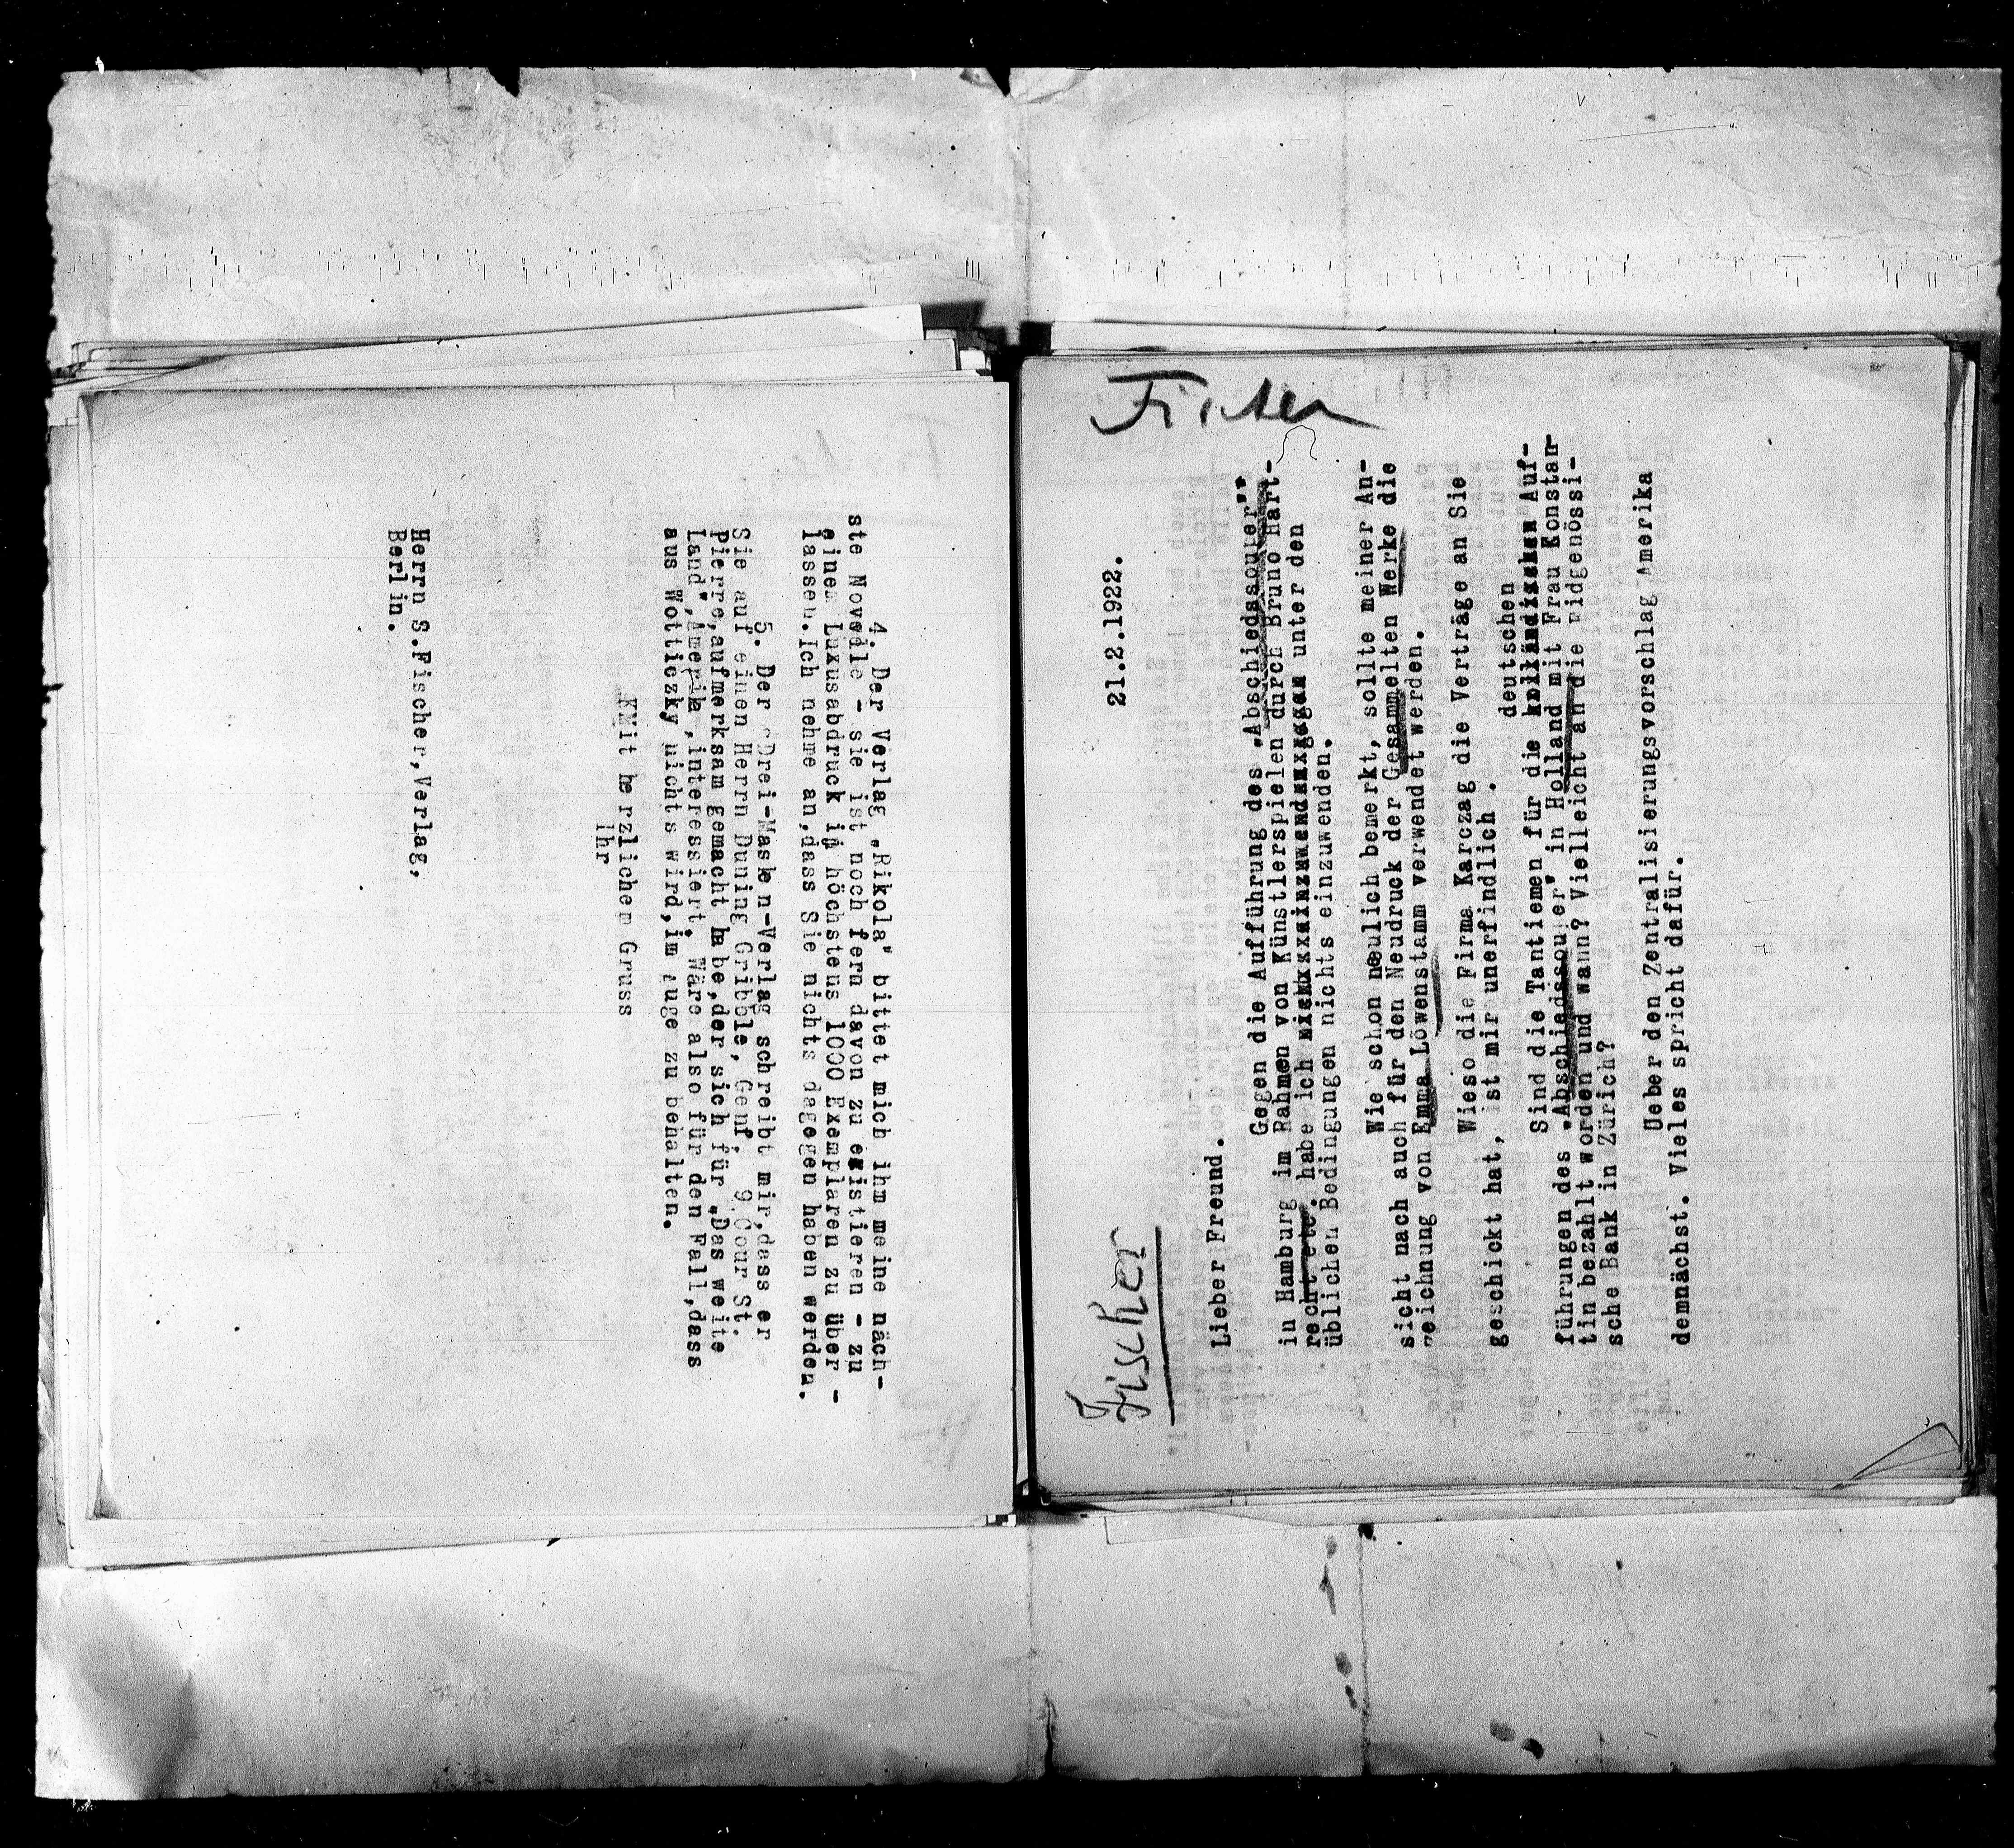 4. Der Verlag „Rikola" bittet mich ihm meine näch-
ste Novelle - sie ist noch fern davon zu existieren - zu
einem Luxusabdruck in höchstens 1000 Exemplaren zu über -
lassen. Ich nehme an, dass Sie nichts dagegen haben werden.
5. Der Drei-Masken-Verlag schreibt mir, dass er
Sie auf einen Herrn Duning Gribble, Genf, 9, Cour St.
Pierre, aufmerksam gemacht habe, der sich für „Das weite
Land", Amerika, interessiert. Wäre also für den Fall, dass
aus Wotticzky nichts wird, im Auge zu behalten.
Mit herzlichem Gruss
Ihr
Herrn S.Fischer, Verlag,
Berlin.
Fischer
Fischer
21.2.1922.
Lieber Freund.
Gegen die Aufführung des „Abschiedssouper"
in Hamburg im Rahmen von Künstlerspielen durch Bruno Hart-
recht etc. habe ich unter den
üblichen Bedingungen nichts einzuwenden.
Wie schon neulich bemerkt, sollte meiner An-
sicht nach auch für den Neudruck der Gesammelten Werke die
Zeichnung von Emma Löwenstamm verwendet werden.
Wieso die Firma Karczag die Verträge an Sie
geschickt hat, ist mir unerfindlich .
deutschen
Sind die Tantiemen für die holländischen Auf-
führungen des „Abschiedssouper" in Holland mit Frau Konstan-
tin bezahlt worden und wann? Vielleicht an die Eidgenössi-
sche Bank in Zürich?
Ueber den Zentralisierungsvorschlag Amerika
demnächst. Vieles spricht dafür.